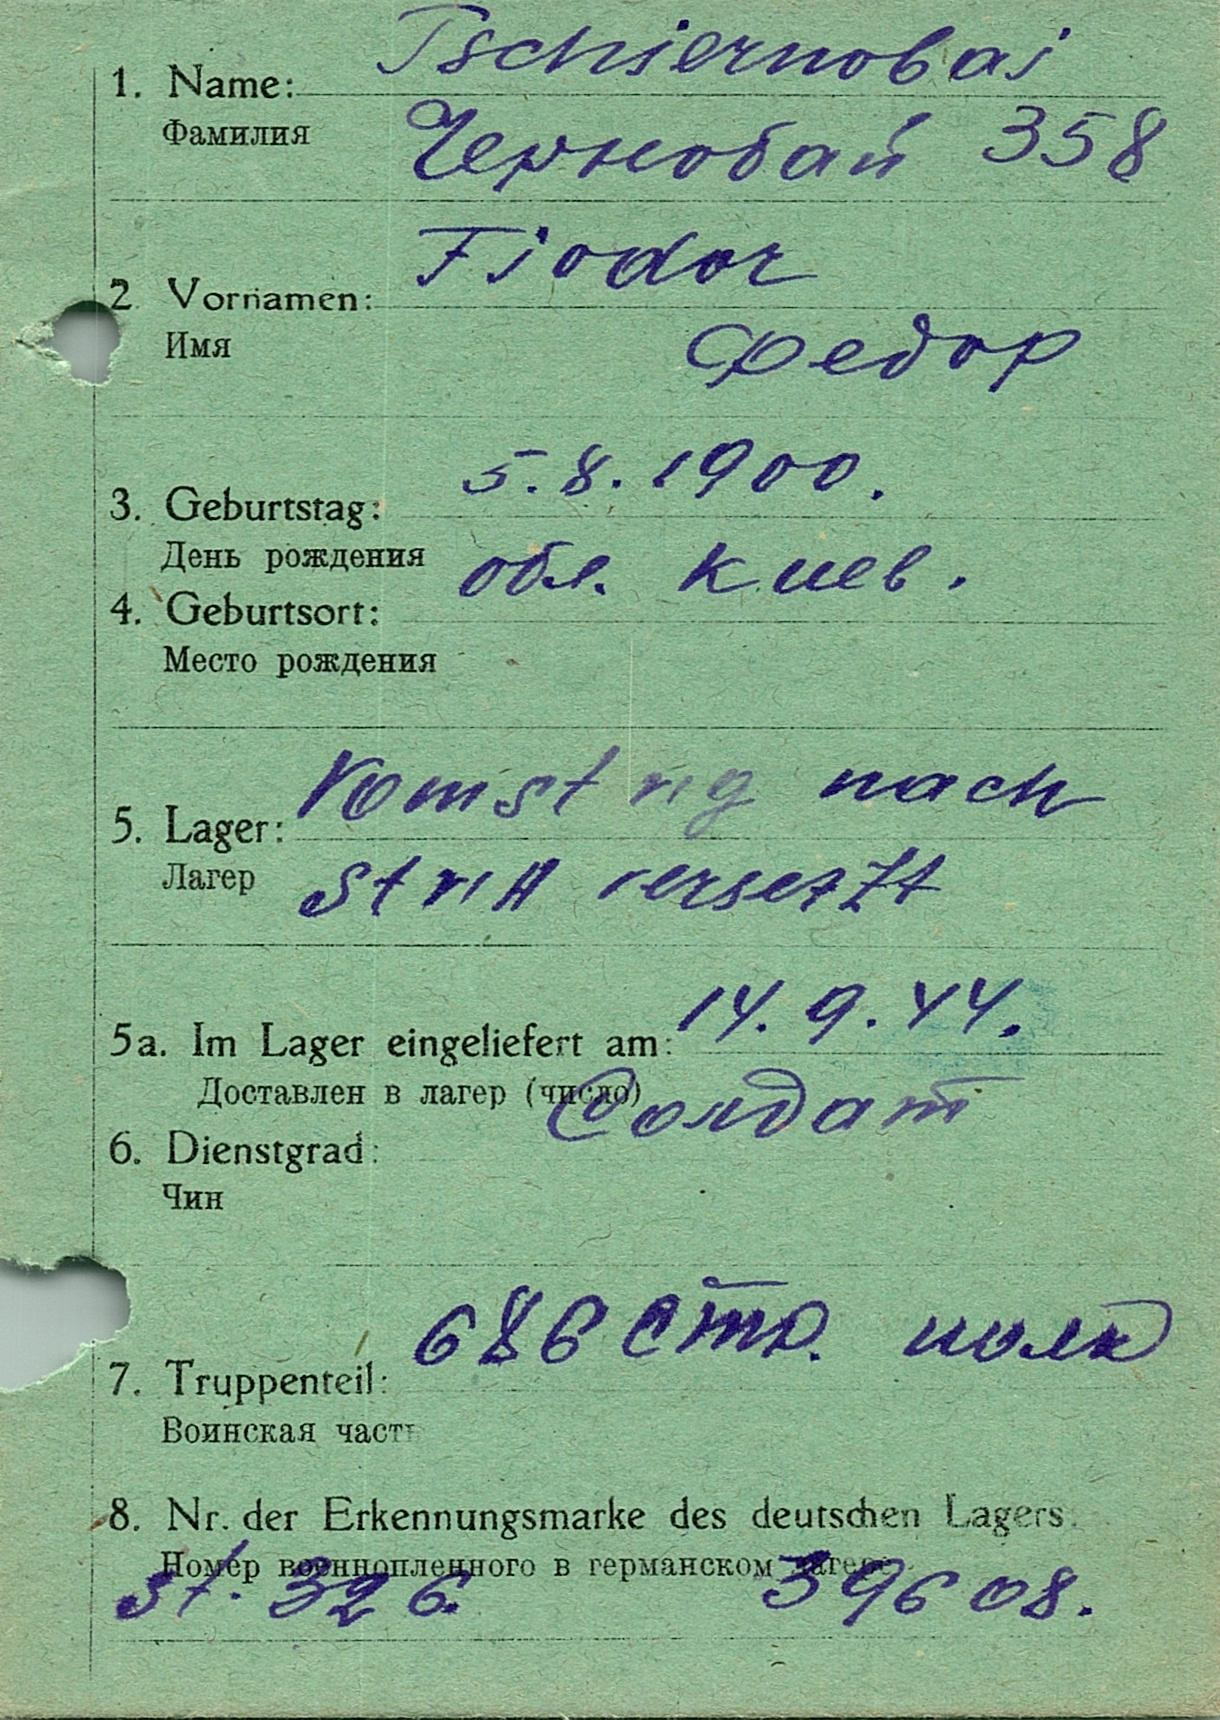 Tschiernobai
1. Name:
Фамилия
Чернобай 358
Fiodor
2 Vornamen:
Имя
Федор
5.8.1900.
3. Geburtstag:
День рождения
обл. Киев.
4. Geburtsort:
Место рождения
nach
5. Lager:
Лагер
versetzt
14.9.44.
5a. Im Lager eingeliefert am:
Доставлен в лагер (число)
Солдат
6. Dienstgrad:
Чин
686 стр. полк
7. Truppenteil:
Воинская часть
8. Nr. der Erkennungsmarke des deutschen Lagers
Номер военнопленного в германском лагере
St. 326. 39608.